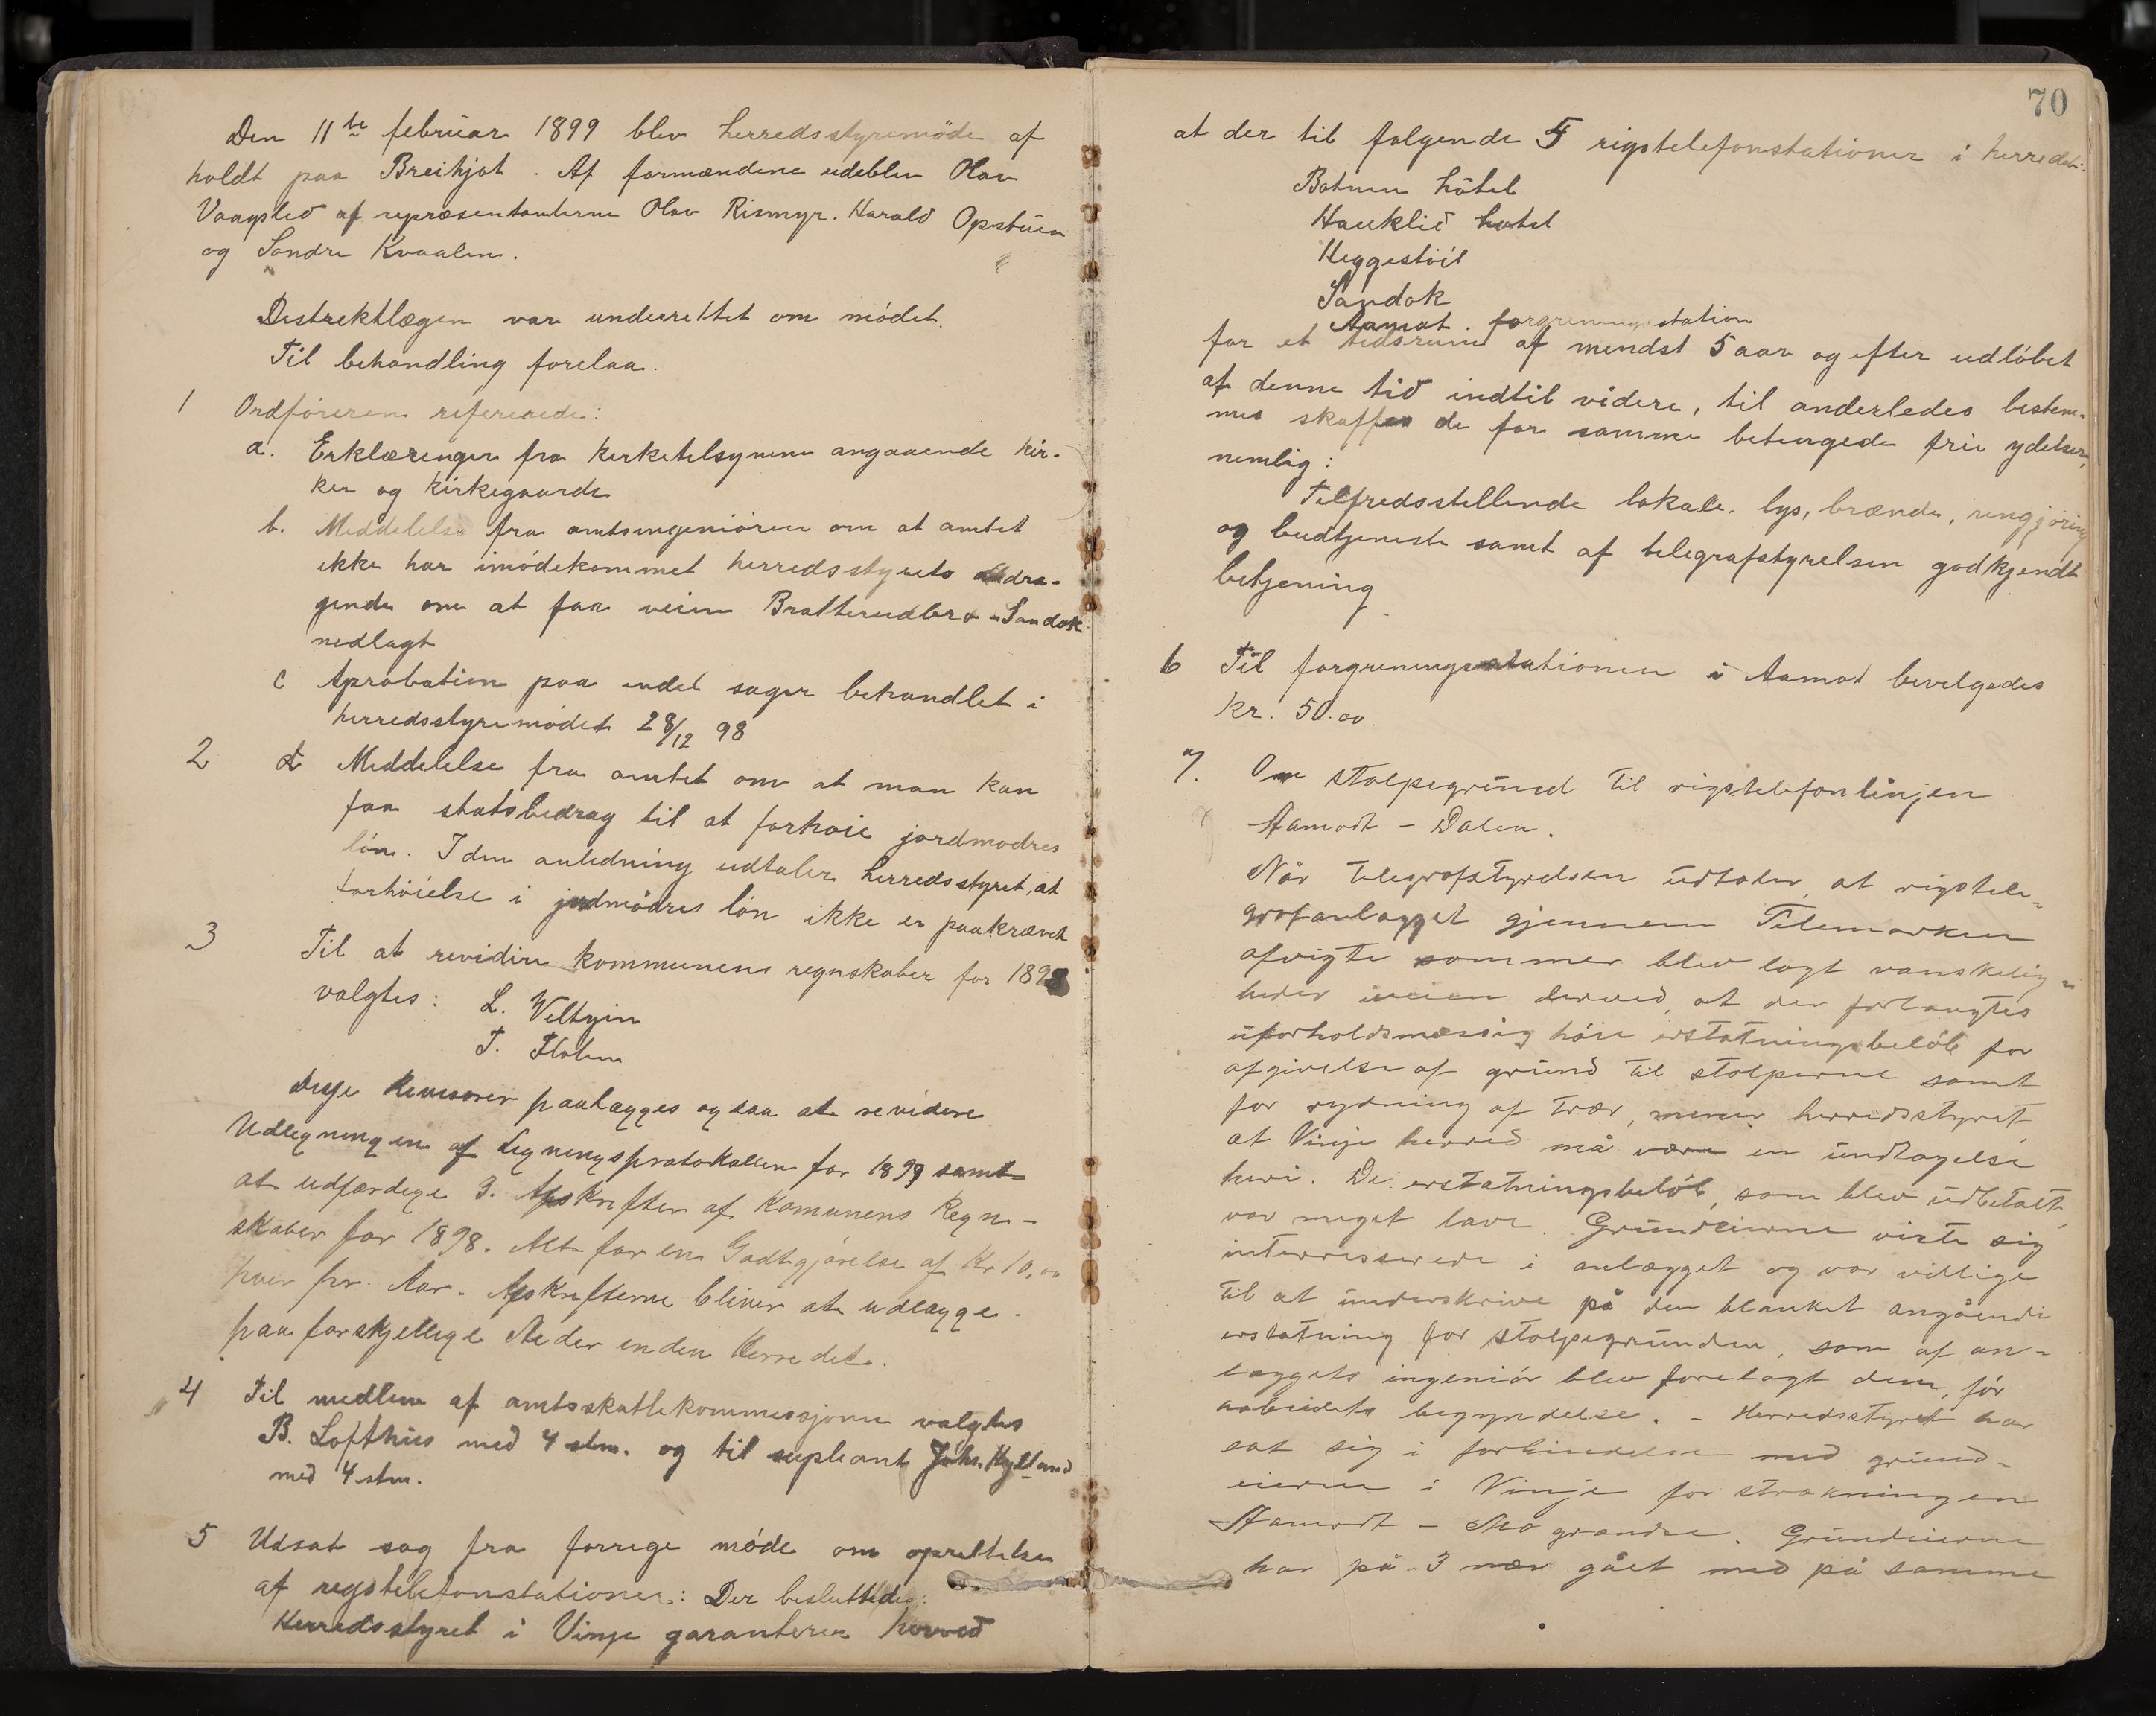 Den 11te februar 1899 blev herredsstyremöde af
holdt paa Breihjot. Af formændene udeblev Olav
Vaagslid af repræsentanterne Olav Rismyr. Harald Opstuen
og Sondre Kvaalen.
Destrektlægen var underrettet om mödet.
Til behandling forelaa.
1 Ordföreren refererede:
a. Erklæringer fra kirketelsynene angaaende kir-
ker og kirkegaarde
b. Meddelelse fra amtsingeniören om at amtet
ikke har imödekommet herredsstyrets andra-
gende om at faa veien Bratterudbro - Sandok
nedlagt
c Aprobation paa endel sager behandlet i
herredsstyremödet 28/12 98
2 d Meddelelse fra amtet om at man kan
faa statsbedrag til at forhöie jordmodres
lön. I den anledning udtaler herredsstyret, at
forhöielse i jordmödres lön ikke er paakrævet
3 Til at revidire kommunens regnskaber for 1898
valgtes: L. Veltyin
T. Flaten
Disse Revisorer paalægges ogsaa at revidere
Udlegningen af Legningsprotokollen for 1899 samt
at udfærdige 3. Afskrifter af Komunens Regn-
skaber for 1898. Alt for en Godtgjörelse af Kr 10,00
hver pr. Aar. Afskrifterne bliver at udlægge
paa forskjellige Steder inden Herredet.
4 Til medlem af amtsskattekommissjonen valgtes
B. Lofthus med 4 stm. og til supleant Johs. Hylland
med 4 stm.
5 Udsat sag fra forrige möde om oprettelse
af rigstelefonstationer: Der besluttedes:
Herredsstyret i Vinje garanterer herved
70
at der til folgende 5 rigstelefonstationer i herredet:
Botnen hôtel
Hauklid hotel
Heggestöil
Sandok
Aamot. forgreningsstation
for et tidsrum af mindst 5 aar og efter udlöbet
af denne tid indtil videre, til anderledes bestem-
mes skaffes de for samme betingede frie ydelser,
nemlig:
Tilfredsstellende lokale. lys, brænde, rengjöring
og budtjeneste samt af telegrafstyrelsen godkjendt
betjening
6 Til forgreningsstationen i Aamot bevilgedes
kr. 50.00.
7. Om stolpegrund til rigstelefonlinjen
Aamodt - Dalen.
Når telegrafstyrelsen udtaler, at rigstele-
grafanlægget gjennem Telemarken
afvigte sommer blev lagt vanskelig-
heder i veien derved, at der forlangtes
uforholdsmæssig höie erstatningsbelöb for
afgivelse af grund til stolperne samt
for rydning af trær, mener herredsstyret,
at Vinje herred må være en undtagelse
heri. De erstatningsbelöb, som blev udbetalt,
var meget lave. Grundeierne viste sig
interresserede i anlægget og var villige
til at underskrive på den blanket angående
erstatning for stolpegrunden, som af an-
læggets ingeniör blev forelagt dem, för
arbeidets begyndelse. - Herredsstyret har
sat sig i forbindelse med grund-
eierne i Vinje for strækningen
Aamodt - Mo grændse. Grundeierne
har på 3 nær gået med på samme